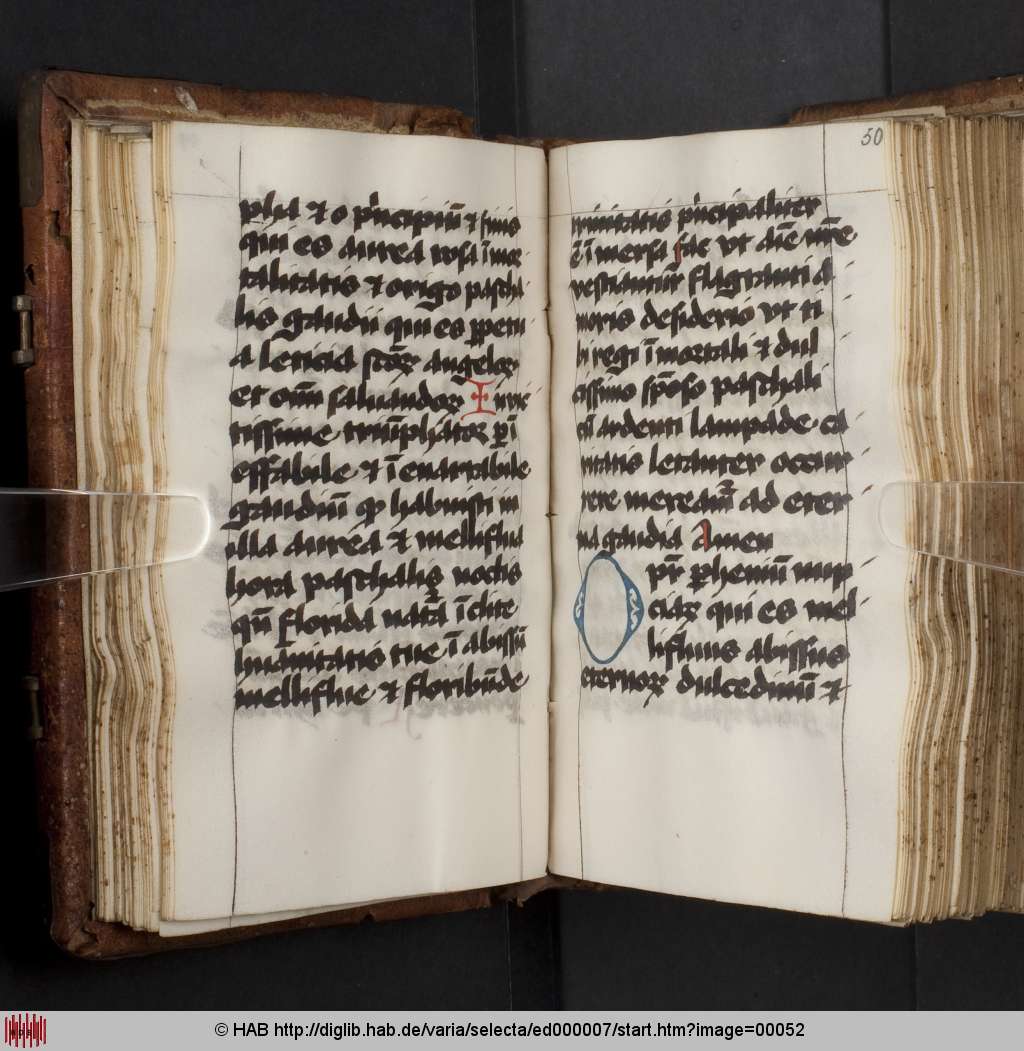 pha et o p'ncipiū et finis
qui es aurea rosa ī mor
talitatis et origo pascha
lis gaudii qui es ꝑpetu
a leticia sctoꝝ angeloꝝ
et om̄ saluandoꝝ Invic
tissime triūphatoꝝ ꝑ ī
effabile et ī enarrabile
gaudiū habuisti in
illa aurea et melliflua
hora paschalis noctis
qn̄ florida nat'a īclite
hūanitatis tue ī abissū
melliflue et floribūde
50
trinitatis p'ncipaliter
ē īmersa fac vt aīe nr̄e
vestiant' flagranti a
moris desiderio vt ti
bi regi īmortali et dul
cissimo spōso paschali
cū ardenti lampade ca
ritatis letanter occur
rere meream' ad eter
na gaudia Amen
O pr̄ ꝑhenniū nup
ciaꝝ qui es mel
lifluus abissus
eternoꝝ dulcedinū et
© HAB http://diglib.hab.de/varia/selecta/ed000007/start.htm?image=00052